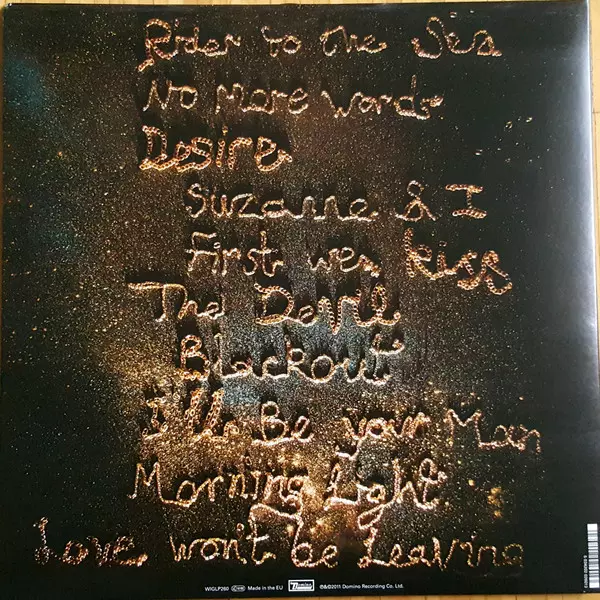 Rider to the Sea
No More Words
Desire
Suzanne & I
First we kiss
The Devil
Blackout
I'll Be your Man
Morning Light
Love won't be Leaving
WIGLP260 Made in the EU Domino ℗&©2011 Domino Recording Co. Ltd.